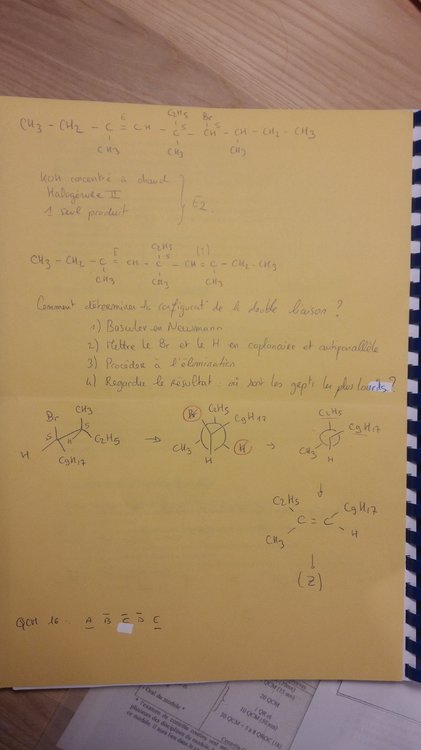 E C2H5 Br
CH3 - CH2 - C = CH - C - CH - CH - CH2 - CH3
S S
CH3 CH3 CH3
KOH concentré à chaud
Halogénure II
1 seul produit
E2.
E C2H5 (?)
CH3 - CH2 - C = CH - C - CH = C - CH2 - CH3
S
CH3 CH3 CH3
Comment déterminer la configurat° de la double liaison ?
1) Basculer en Newmann
2) Mettre le Br et le H en coplanaire et antiparallèle
3) Procéder à l'élimination
4) Regarder le résultat : où sont les gepts les plus lourds ?
Br CH3
S S
H C2H5
H C9H17
Br C2H5
C9H17
CH3 H
H
C2H5
C9H17
CH3
H
C2H5 C9H17
C = C
CH3 H
(Z)
QCM 16 A B C D E
Oral du module
20 QCM